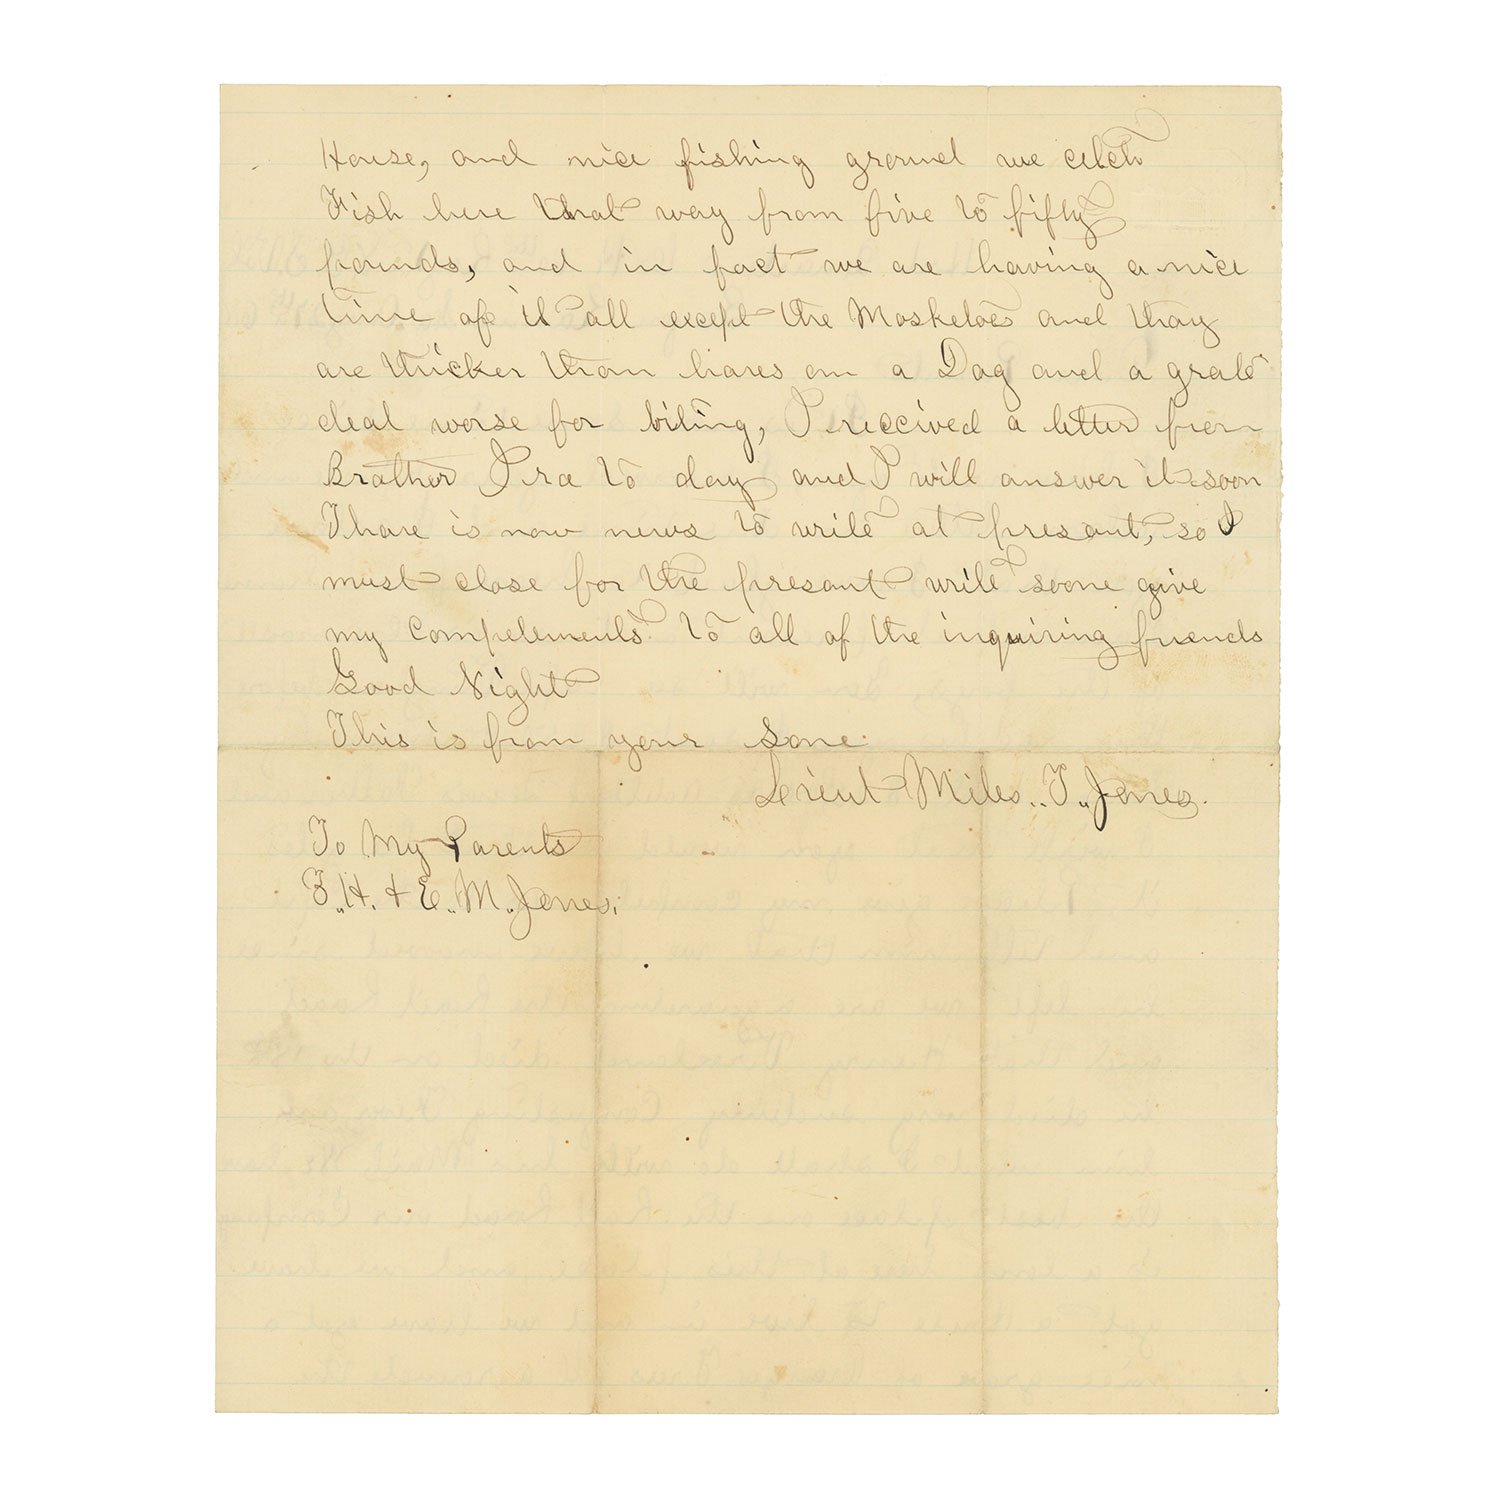 House, and nice fishing ground we cetch
Fish here that way from five to fifty
pounds, and in fact we are having a nice
time of it all except the Mosketoes and thay
are thicker than hares on a Dog and a grate
deal worse for biting, I reccived a letter from
Brother Ira to day and I will answer it soon
Thare is now news to write at presant, so I
must close for the presant write soone give
my compelements to all of the inquiring friends
Good Night
This is from your Sone.
Leieut Miles.. T,, Jones.
To My Parents
F,, H. & E,, M,, Jones,